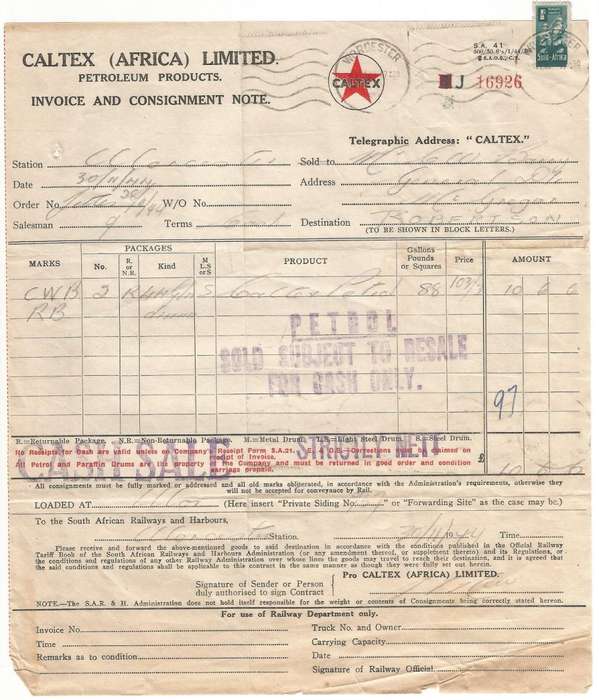 CALTEX (AFRICA) LIMITED.
PETROLEUM PRODUCTS.
INVOICE AND CONSIGNMENT NOTE.
WORCESTER
CALTEX
S.A. 41
J 16926
Suid-Afrika
Telegraphic Address: "CALTEX."
Station
Sold to
Date 30/11/44
Address
Order No. Letter W/O No.
Mc Gregor
Salesman
Terms
Destination ROBERTSON
(TO BE SHOWN IN BLOCK LETTERS.)
MARKS
PACKAGES
No.
R. or N.R.
Kind
M L.S or S
PRODUCT
Gallons Pounds or Squares
Price
AMOUNT
CWB 2 R S Caltex Petrol 88 10 6 6
RB drums
PETROL
SOLD SUBJECT TO RESALE
FOR CASH ONLY.
97
R.=Returnable Package. N.R.=Non-Returnable Package. M.=Metal Drum. L.S.=Light Steel Drum. S.=Steel Drum.
No Receipts for Cash are valid unless on Company's Receipt Form S.A.21. E. & O.E.—Corrections must be claimed on receipt of Invoice.
Petrol and Paraffin Drums are the property of the Company and must be returned in good order and condition carriage prepaid.
CASH SALE
STRICTLY NETT
£
All consignments must be fully marked or addressed and all old marks obliterated, in accordance with the Administration's requirements, otherwise they
will not be accepted for conveyance by Rail.
LOADED AT (Here insert "Private Siding No." or "Forwarding Site" as the case may be.)
To the South African Railways and Harbours,
Station. Time
Please receive and forward the above-mentioned goods to said destination in accordance with the conditions published in the Official Railway
Tariff Book of the South African Railways and Harbours Administration (or any amendment thereof, or supplement thereto) and its Regulations, or
the conditions and regulations of any other Railway Administration over whose lines the goods may travel to reach their destination, and it is agreed that
the said conditions and regulations shall be applicable to this contract in the same manner as though they were fully set out herein.
Signature of Sender or Person
duly authorised to sign Contract
Pro CALTEX (AFRICA) LIMITED.
NOTE.—The S.A.R. & H. Administration does not hold itself responsible for the weight or contents of Consignments being correctly stated hereon.
For use of Railway Department only.
Invoice No.
Truck No. and Owner
Time
Carrying Capacity
Remarks as to condition
Date
Signature of Railway Official